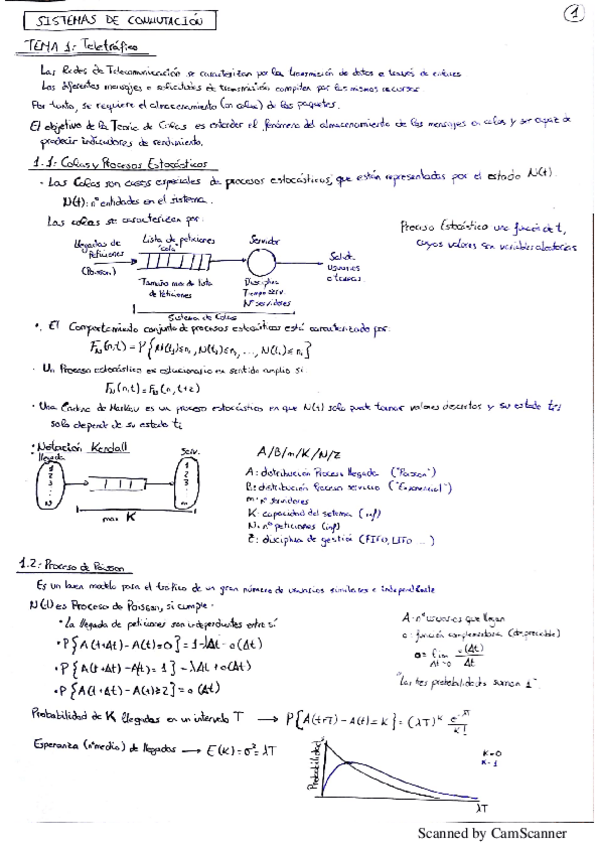 SISTEMAS DE CONMUTACIÓN
1
TEMA 1: Teletráfico
Las Redes de Telecomunicación se caracterizan por la transmisión de datos a través de enlaces
Los diferentes mensajes o solicitudes de transmisión compiten por los mismos recursos
Por tanto, se requiere el almacenamiento (en colas) de los paquetes.
El objetivo de la Teoría de Colas es entender el fenómeno del almacenamiento de los mensajes en colas y ser capaz de
predecir indicadores de rendimiento.
1.1: Colas y Procesos Estocásticos
· Las Colas son casos especiales de procesos estocásticos, que están representadas por el estado N(t).
N(t): nº entidades en el sistema.
Las colas se caracterizan por:
Proceso Estocástico una función de t,
cuyos valores son variables aleatorias
Llegadas de
Peticiones
(Poisson)
Lista de peticiones
"cola"
Servidor
Salida
usuarios
o tareas.
Tamaño max de lista
de Peticiones
Disciplina
Tiempo serv.
Nº servidores
Sistema de Colas
· El Comportamiento conjunto de procesos estocásticos está caracterizado por:
· Un Proceso estocástico es estacionario en sentido amplio si:
· Una Cadena de Markov es un proceso estocástico en que N(t) solo puede tomar valores discretos y su estado
solo depende de su estado
· Notación Kendall
llegada
serv.
1
2
3
N
1
2
3
m
max K
A/B/m/K/N/Z
A: distribución Proceso llegada ("Poisson")
B: distribución Proceso servicio ("Exponencial")
m: nº servidores
K: capacidad del sistema (inf)
N: nº peticiones (inf)
Z: disciplina de gestión (FIFO, LIFO ...)
1.2: Proceso de Poisson
Es un buen modelo para el tráfico de un gran número de usuarios similares e independiente
N(t) es Proceso de Poisson, si cumple:
· La llegada de peticiones son independientes entre sí
· P{A(t+Δt) - A(t) = 0} = 1 - λΔt - o(Δt)
· P{A(t+Δt) - A(t) = 1} = λΔt + o(Δt)
· P{A(t+Δt) - A(t) ≥ 2} = o(Δt)
A: nº usuarios que llegan
o: función complementaria (despreciable)
"las tres probabilidades suman 1"
Probabilidad de K llegadas en un intervalo T → P{A(t+T) - A(t) = K} = (λT)^K e^-λT / K!
Esperanza (nº medio) de llegadas → E(K) = σ² = λT
Probabilidad
K=0
K=1
λT
Scanned by CamScanner